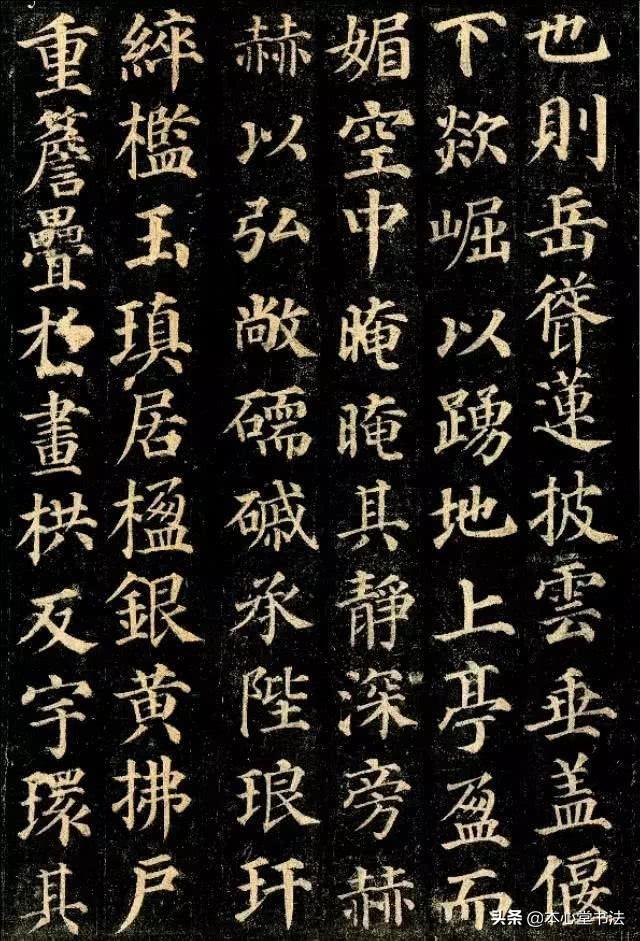 也則岳聳蓮披雲垂盖偃
下欻崛以踴地上亭盈而
媚空中晻晻其靜深旁赫
赫以弘敞礝磩承陛琅玕
綷檻玉瑱居楹銀黃拂戶
重簷疊扵畫栱反宇環其
头条 @本心堂书法